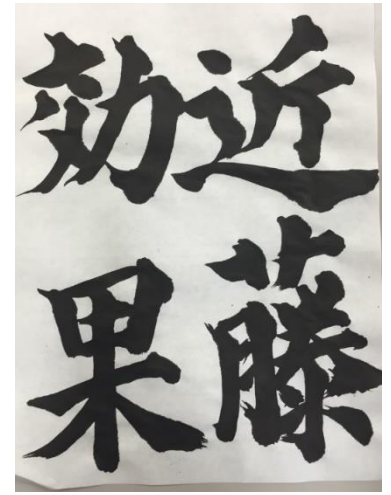 近藤
効果